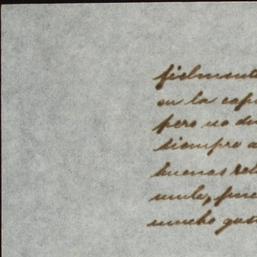 fielmente
en la cap
pero no du
siempre a
buenas rel
mucho gus